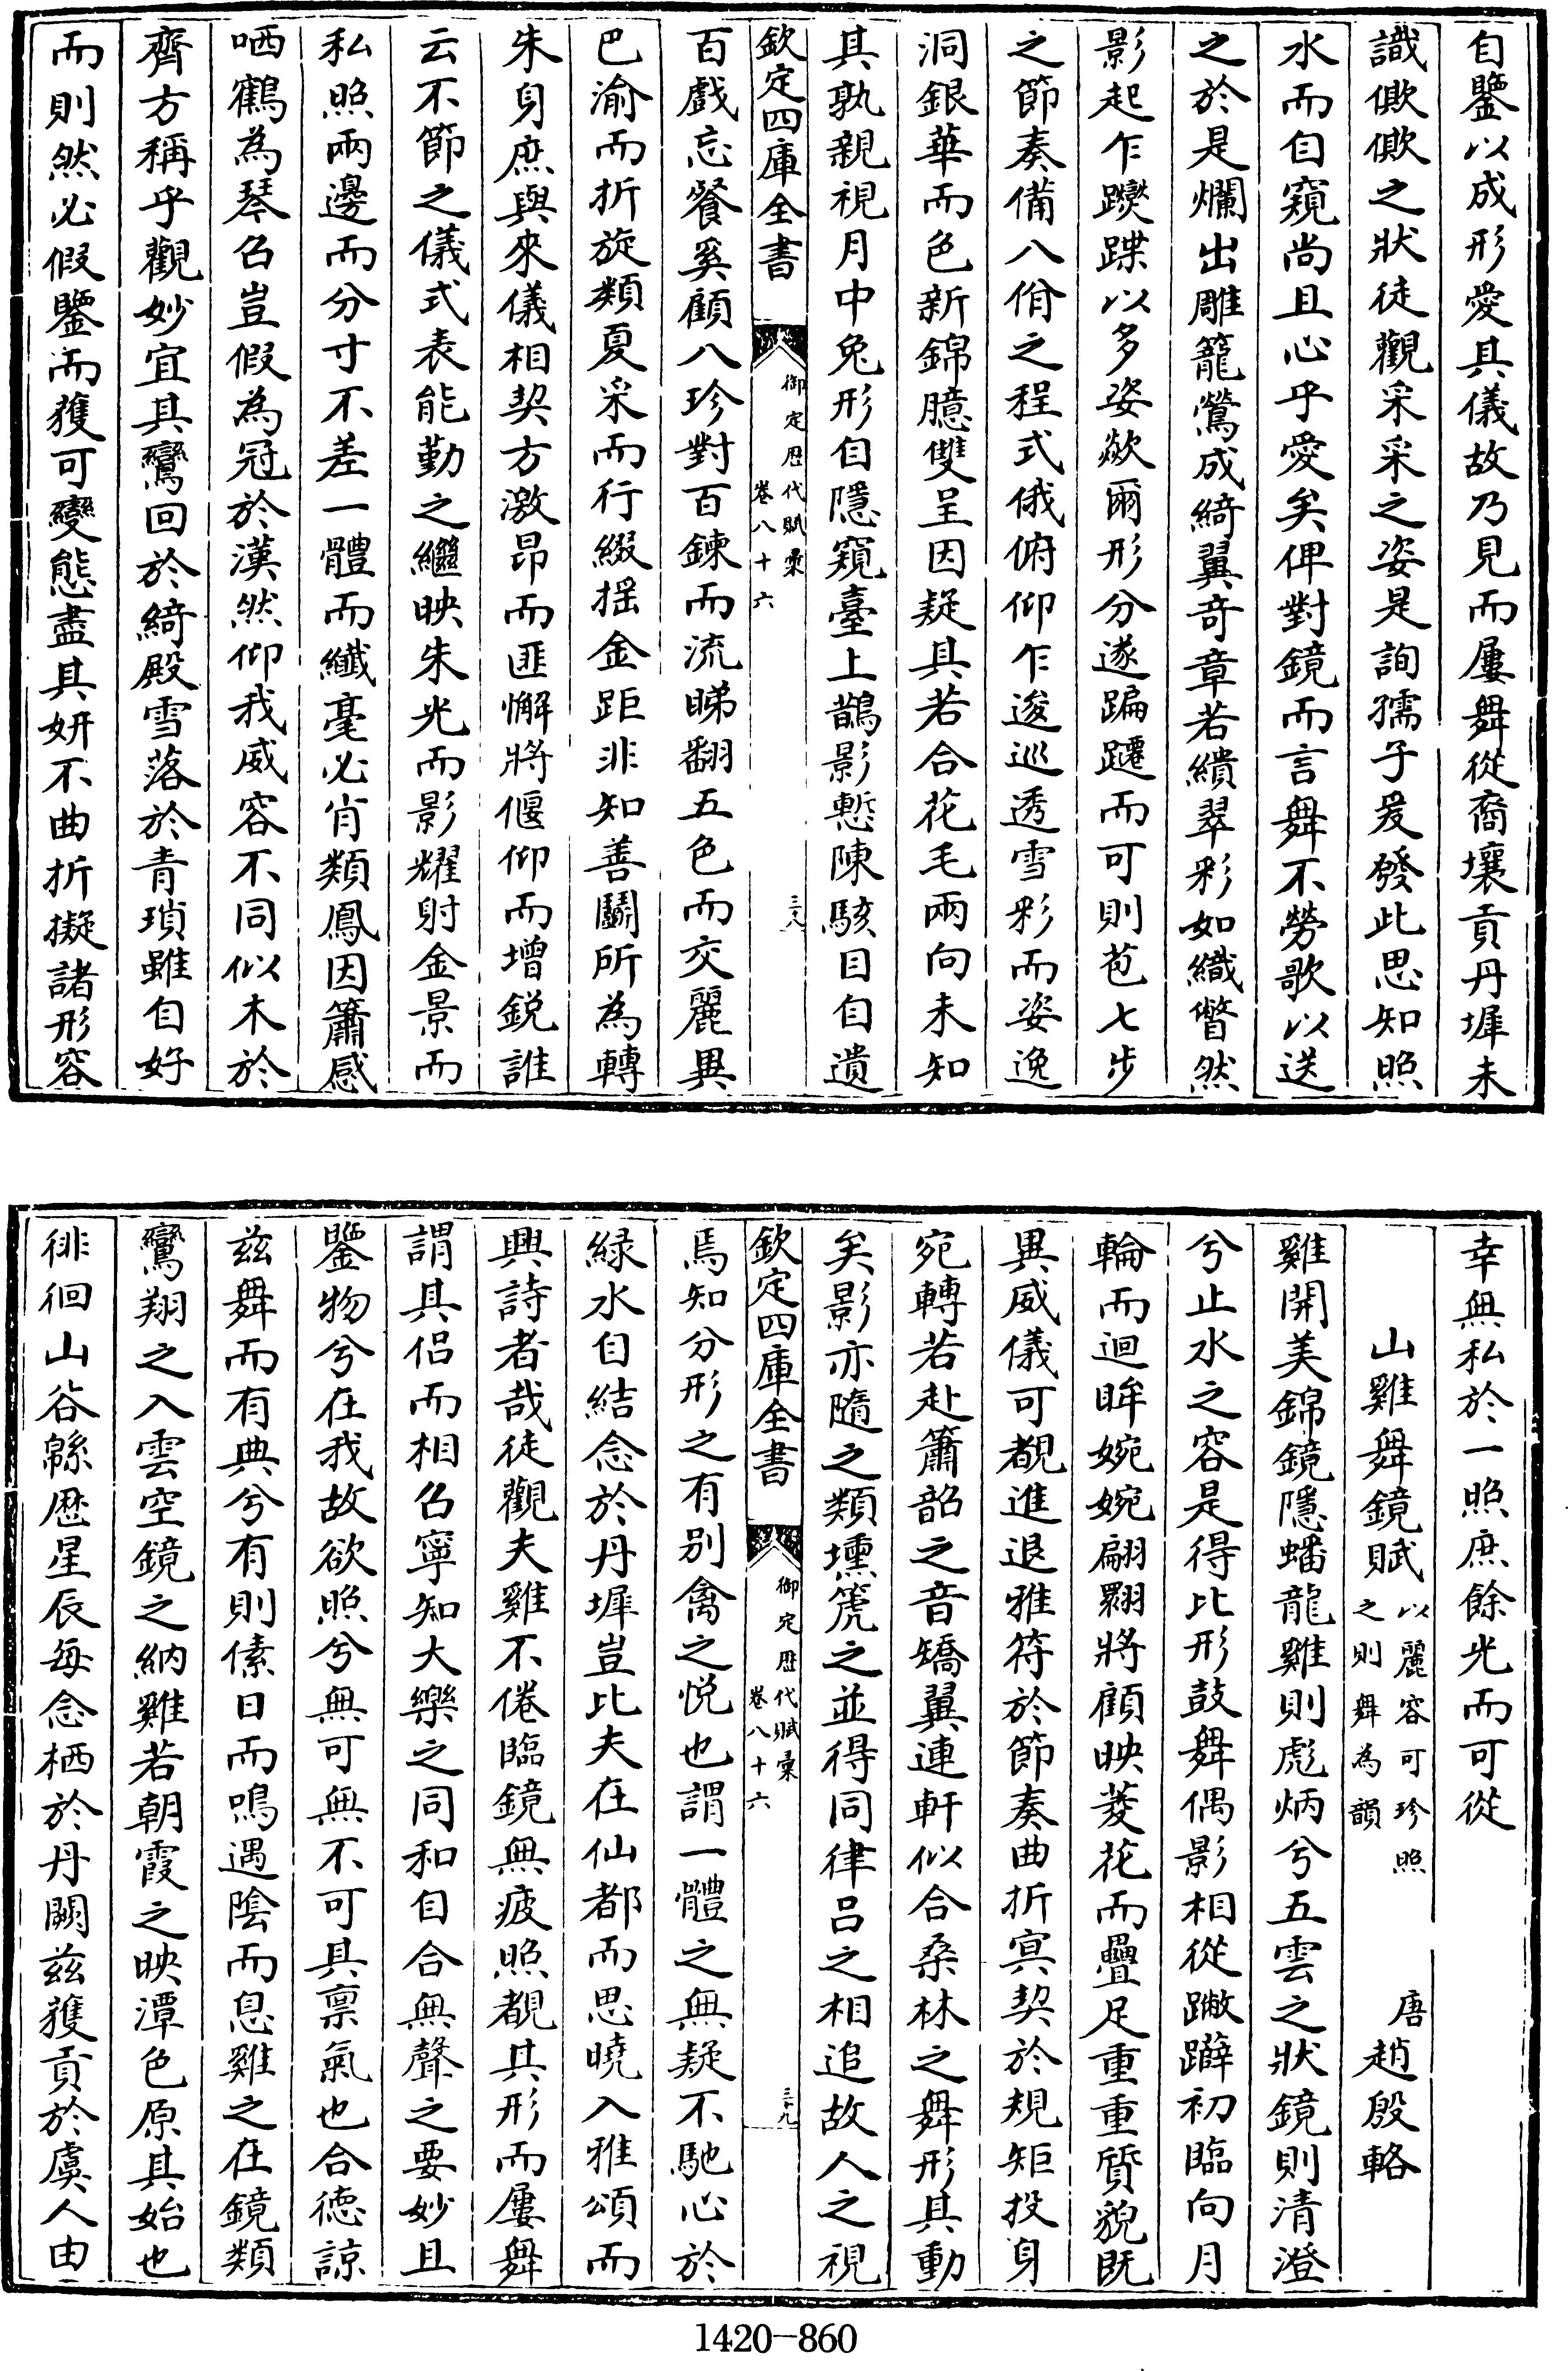 自鑒以成形愛具儀故乃見而屢舞從裔壤貢丹墀未
識僛僛之狀徒觀采采之姿是詢孺子爰發此思知照
水而自窺尚且心乎愛矣俾對鏡而言舞不勞歌以送
之於是爛出雕籠鶯成綺翼奇章若繢翠彩如織瞥然
影起乍躞蹀以多姿歘爾形分遂蹁躚而可則苞七步
之節奏備八佾之程式俄俯仰乍逡巡透雪彩而姿逸
洞銀華而色新錦臆雙呈因疑具若合花毛兩向未知
其孰親視月中兔形自隱窺臺上鵲影慙陳駭目自遺
欽定四庫全書
御定歴代賦彙
卷八十六
三十八
百戲忘餐奚顧八珍對百鍊而流睇翻五色而交麗異
巴渝而折旋類夏采而行綴揺金距非知善鬬所為轉
朱身庶與來儀相契方激昂而匪懈將偃仰而增鋭誰
云不節之儀式表能勤之繼映朱光而影耀射金景而
私照兩邊而分寸不差一體而纖毫必肖類鳳因簫感
哂鶴為琴召豈假為冠於漢然仰我威容不同似木於
齊方稱乎觀妙宜其鸞回於綺殿雪落於青瑣雖自好
而則然必假鑒而獲可變態盡具妍不曲折擬諸形容
幸無私於一照庶餘光而可從
山雞舞鏡賦以麗容可珍照之則舞為韻 唐趙殷輅
雞開美錦鏡隱蟠龍雞則彪炳兮五雲之狀鏡則清澄
兮止水之容是得比形鼓舞偶影相從蹴躃初臨向月
輪而迴眸婉婉翩翾將顧映菱花而疊足重重質貌既
異威儀可覩進退雅符於節奏曲折㝠契於規矩投身
宛轉若赴簫韶之音矯翼連軒似合桑林之舞形其動
矣影亦隨之類壎箎之並得同律吕之相追故人之視
欽定四庫全書
御定歴代賦彙
卷八十六
三十九
焉知分形之有别禽之悦也謂一體之無疑不馳心於
緑水自結念於丹墀豈比夫在仙都而思曉入雅頌而
興詩者哉徒觀夫雞不倦臨鏡無疲照覩其形而屢舞
謂其侶而相召寧知大樂之同和自合無聲之要妙且
鑒物兮在我故欲照兮無可無不可具禀氣也合德諒
兹舞而有典兮有則傃日而鳴遇陰而息雞之在鏡類
鸞翔之入雲空鏡之納雞若朝霞之映潭色原其始也
徘徊山谷緜歴星辰每念栖於丹闕兹獲貢於虞人由
1420-860